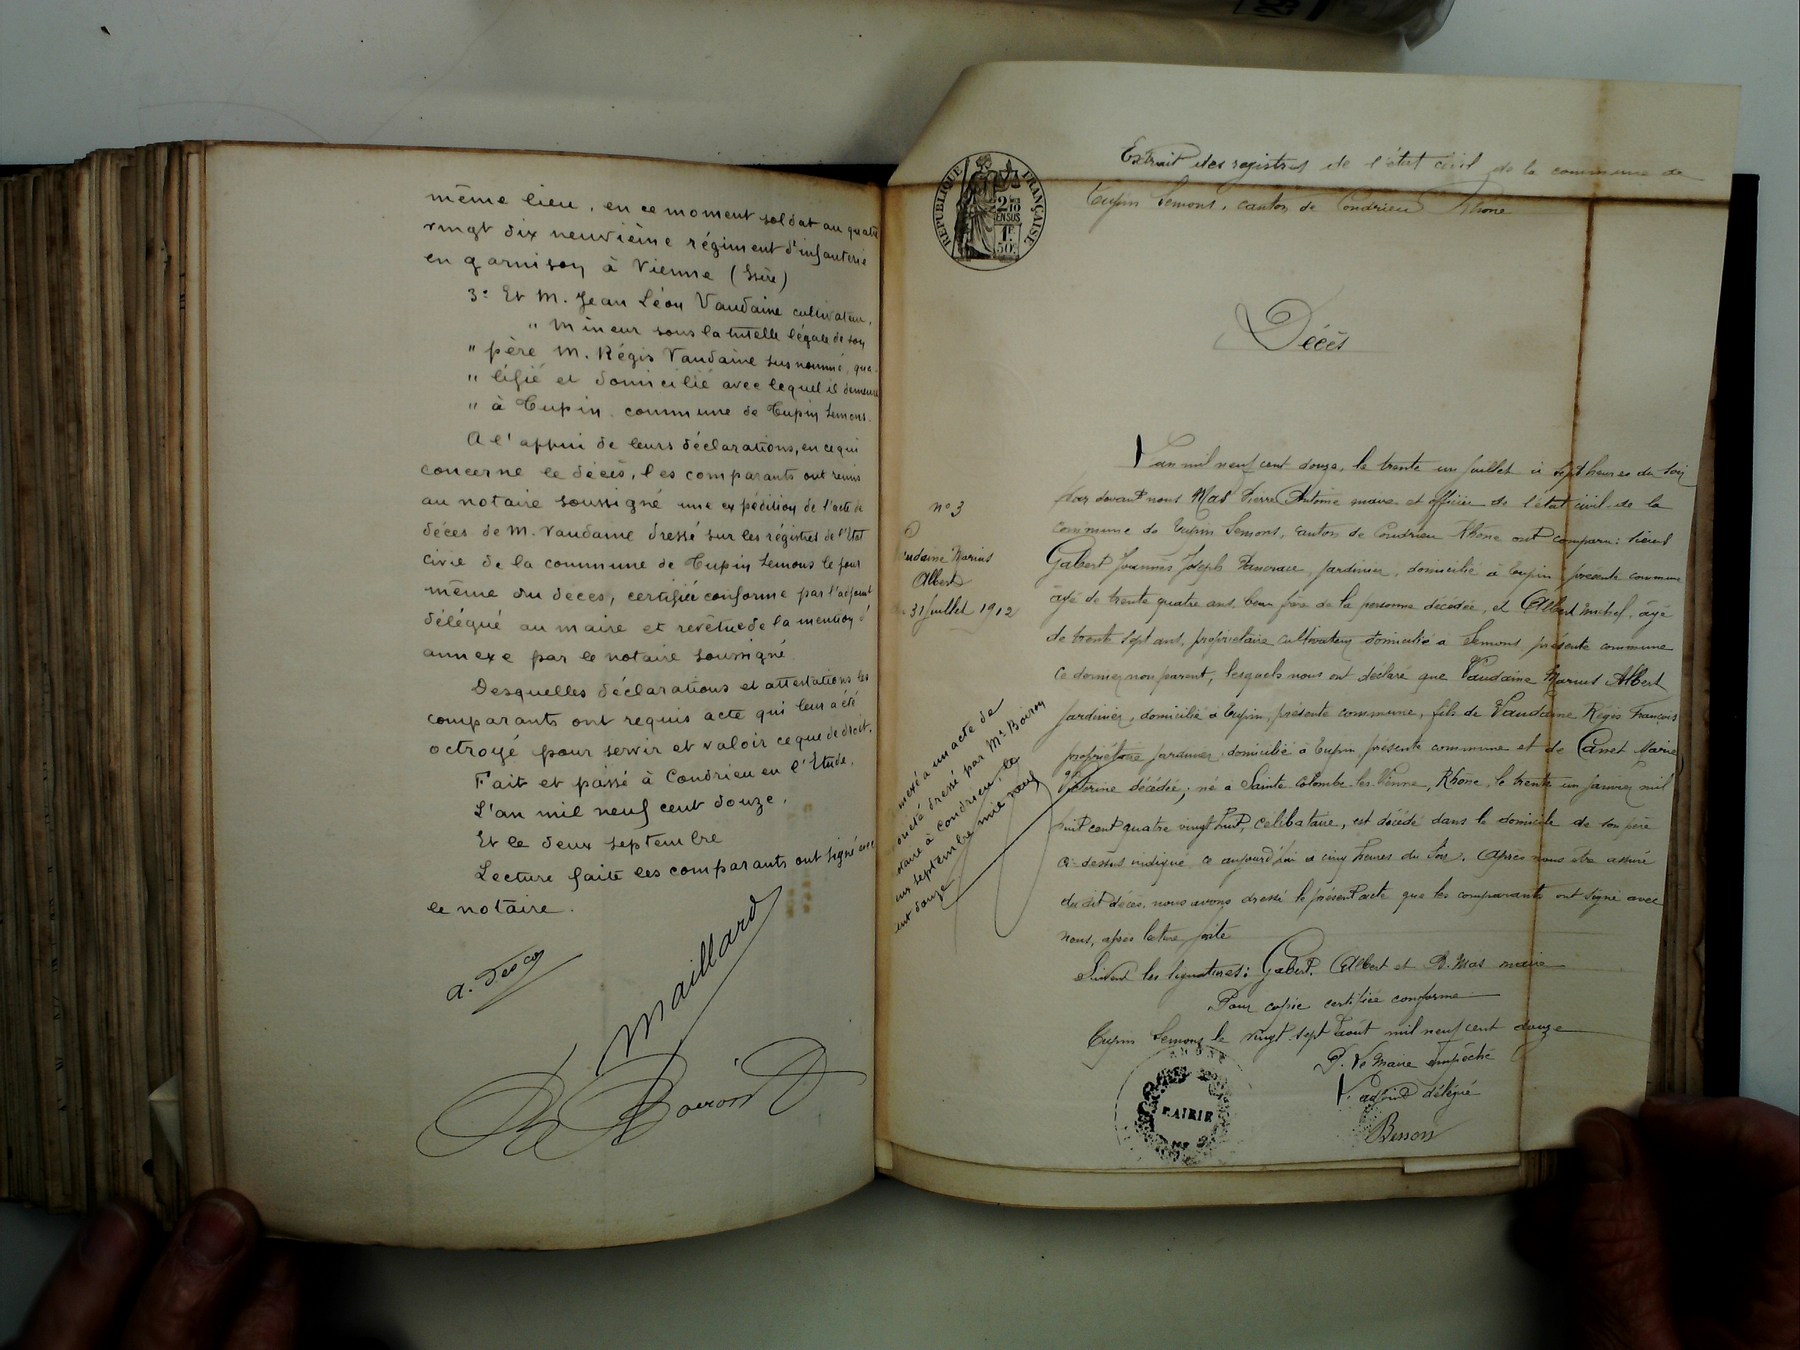 même lieu, en ce moment soldat au quatre
vingt dix neuvième régiment d'infanterie
en garnison à Vienne (Isère)
3º Et M. Jean Léon Vaudaine cultivateur,
" mineur sous la tutelle légale de son
" père M. Régis Vaudaine susnommé, qua-
" lifié et domicilié avec lequel il demeure
" à Tupin commune de Tupin Semons.
A l'appui de leurs déclarations, en ce qui
concerne le décès, les comparants ont remis
au notaire soussigné une expédition de l'acte de
décès de M. Vaudaine dressé sur les régistres de l'Etat
civil de la commune de Tupin Semons le jour
même du décès, certifiée conforme par l'adjoint
délégué au maire et revêtue de la mention d'
annexe par le notaire soussigné
Desquelles déclarations et attestations les
comparants ont requis acte qui leur a été
octroyé pour servir et valoir ce que de droit.
Fait et passé à Condrieu en l'Etude,
L'an mil neuf cent douze,
Et le deux septembre
Lecture faite les comparants ont signé avec
le notaire.
Maillard
Boiron
REPUBLIQUE FRANÇAISE
2/10 EN SUS
1F 50C
Extrait des registres de l'état civil de la commune de
Tupin Semons, canton de Condrieu Rhône
Décès
nº 3
Vaudaine Marius
Albert
31 Juillet 1912
L'an mil neuf cent douze, le trente un Juillet à sept heures du soir
par devant nous Mas Pierre Antoine maire et officier de l'état civil de la
commune de Tupin Semons, canton de Condrieu Rhône ont comparu: sieurs
Gabert Joannès Joseph jardinier, domicilié à Tupin, présente commune
âgé de trente quatre ans, beau frère de la personne décédée, et Albert Michel, âgé
de trente sept ans, propriétaire cultivateur domicilié à Semons, présente commune
ce dernier non parent, lesquels nous ont déclaré que Vaudaine Marius Albert
jardinier, domicilié à Tupin, présente commune, fils de Vaudaine Régis François
propriétaire jardinier domicilié à Tupin présente commune et de Canet Marie
Victorine décédée; né à Sainte Colombe les Vienne, Rhône, le trente un Janvier mil
huit cent quatre vingt huit, célibataire, est décédé dans le domicile de son père
ci-dessus indiqué, ce aujourd'hui à cinq heures du soir. Après nous être assuré
du dit décès, nous avons dressé le présent acte que les comparants ont signé avec
nous, après lecture faite
Suivent les signatures: Gabert, Albert et P. Mas maire
Pour copie certifiée conforme
Tupin Semons le vingt-sept août mil neuf cent douze
P. le Maire empêché
L'adjoint délégué
Besson
MAIRIE
RHONE
annexé à un acte de
notoriété dressé par Me Boiron
notaire à Condrieu, le
deux septembre mil neuf
cent douze